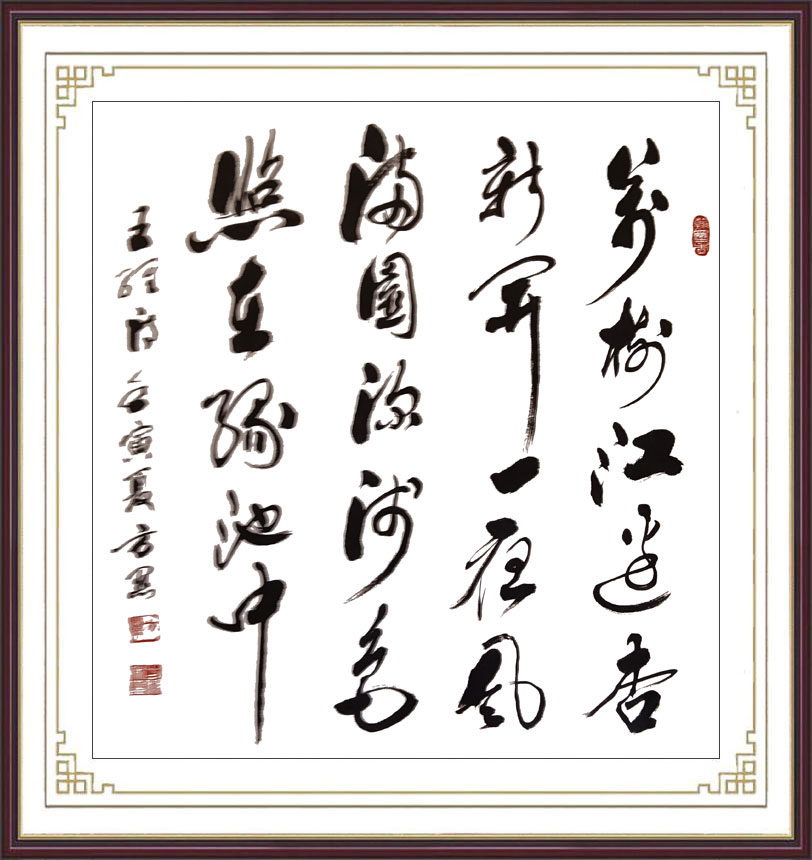 萬樹江邊杏
新開一夜風
滿園深淺色
照在綠池中
王維詩壬寅夏方